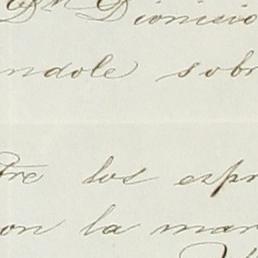 Dn Dionisio
ndole sobr
tre los espr
on la mar